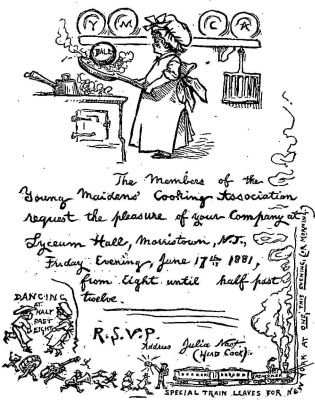 Y M C A
BALL
The Members of the
Young Maidens' Cooking Association
request the pleasure of your Company at
Lyceum Hall, Morristown, N.J.,
Friday Evening, June 17th 1881,
from Eight until half past
twelve.
DANCING
AT
HALF
PAST
EIGHT
R.S.V.P.
Address Julia Nast
(Head Cook).
SPECIAL TRAIN LEAVES FOR NEW YORK AT ONE THIS EVENING (OR MORNING)